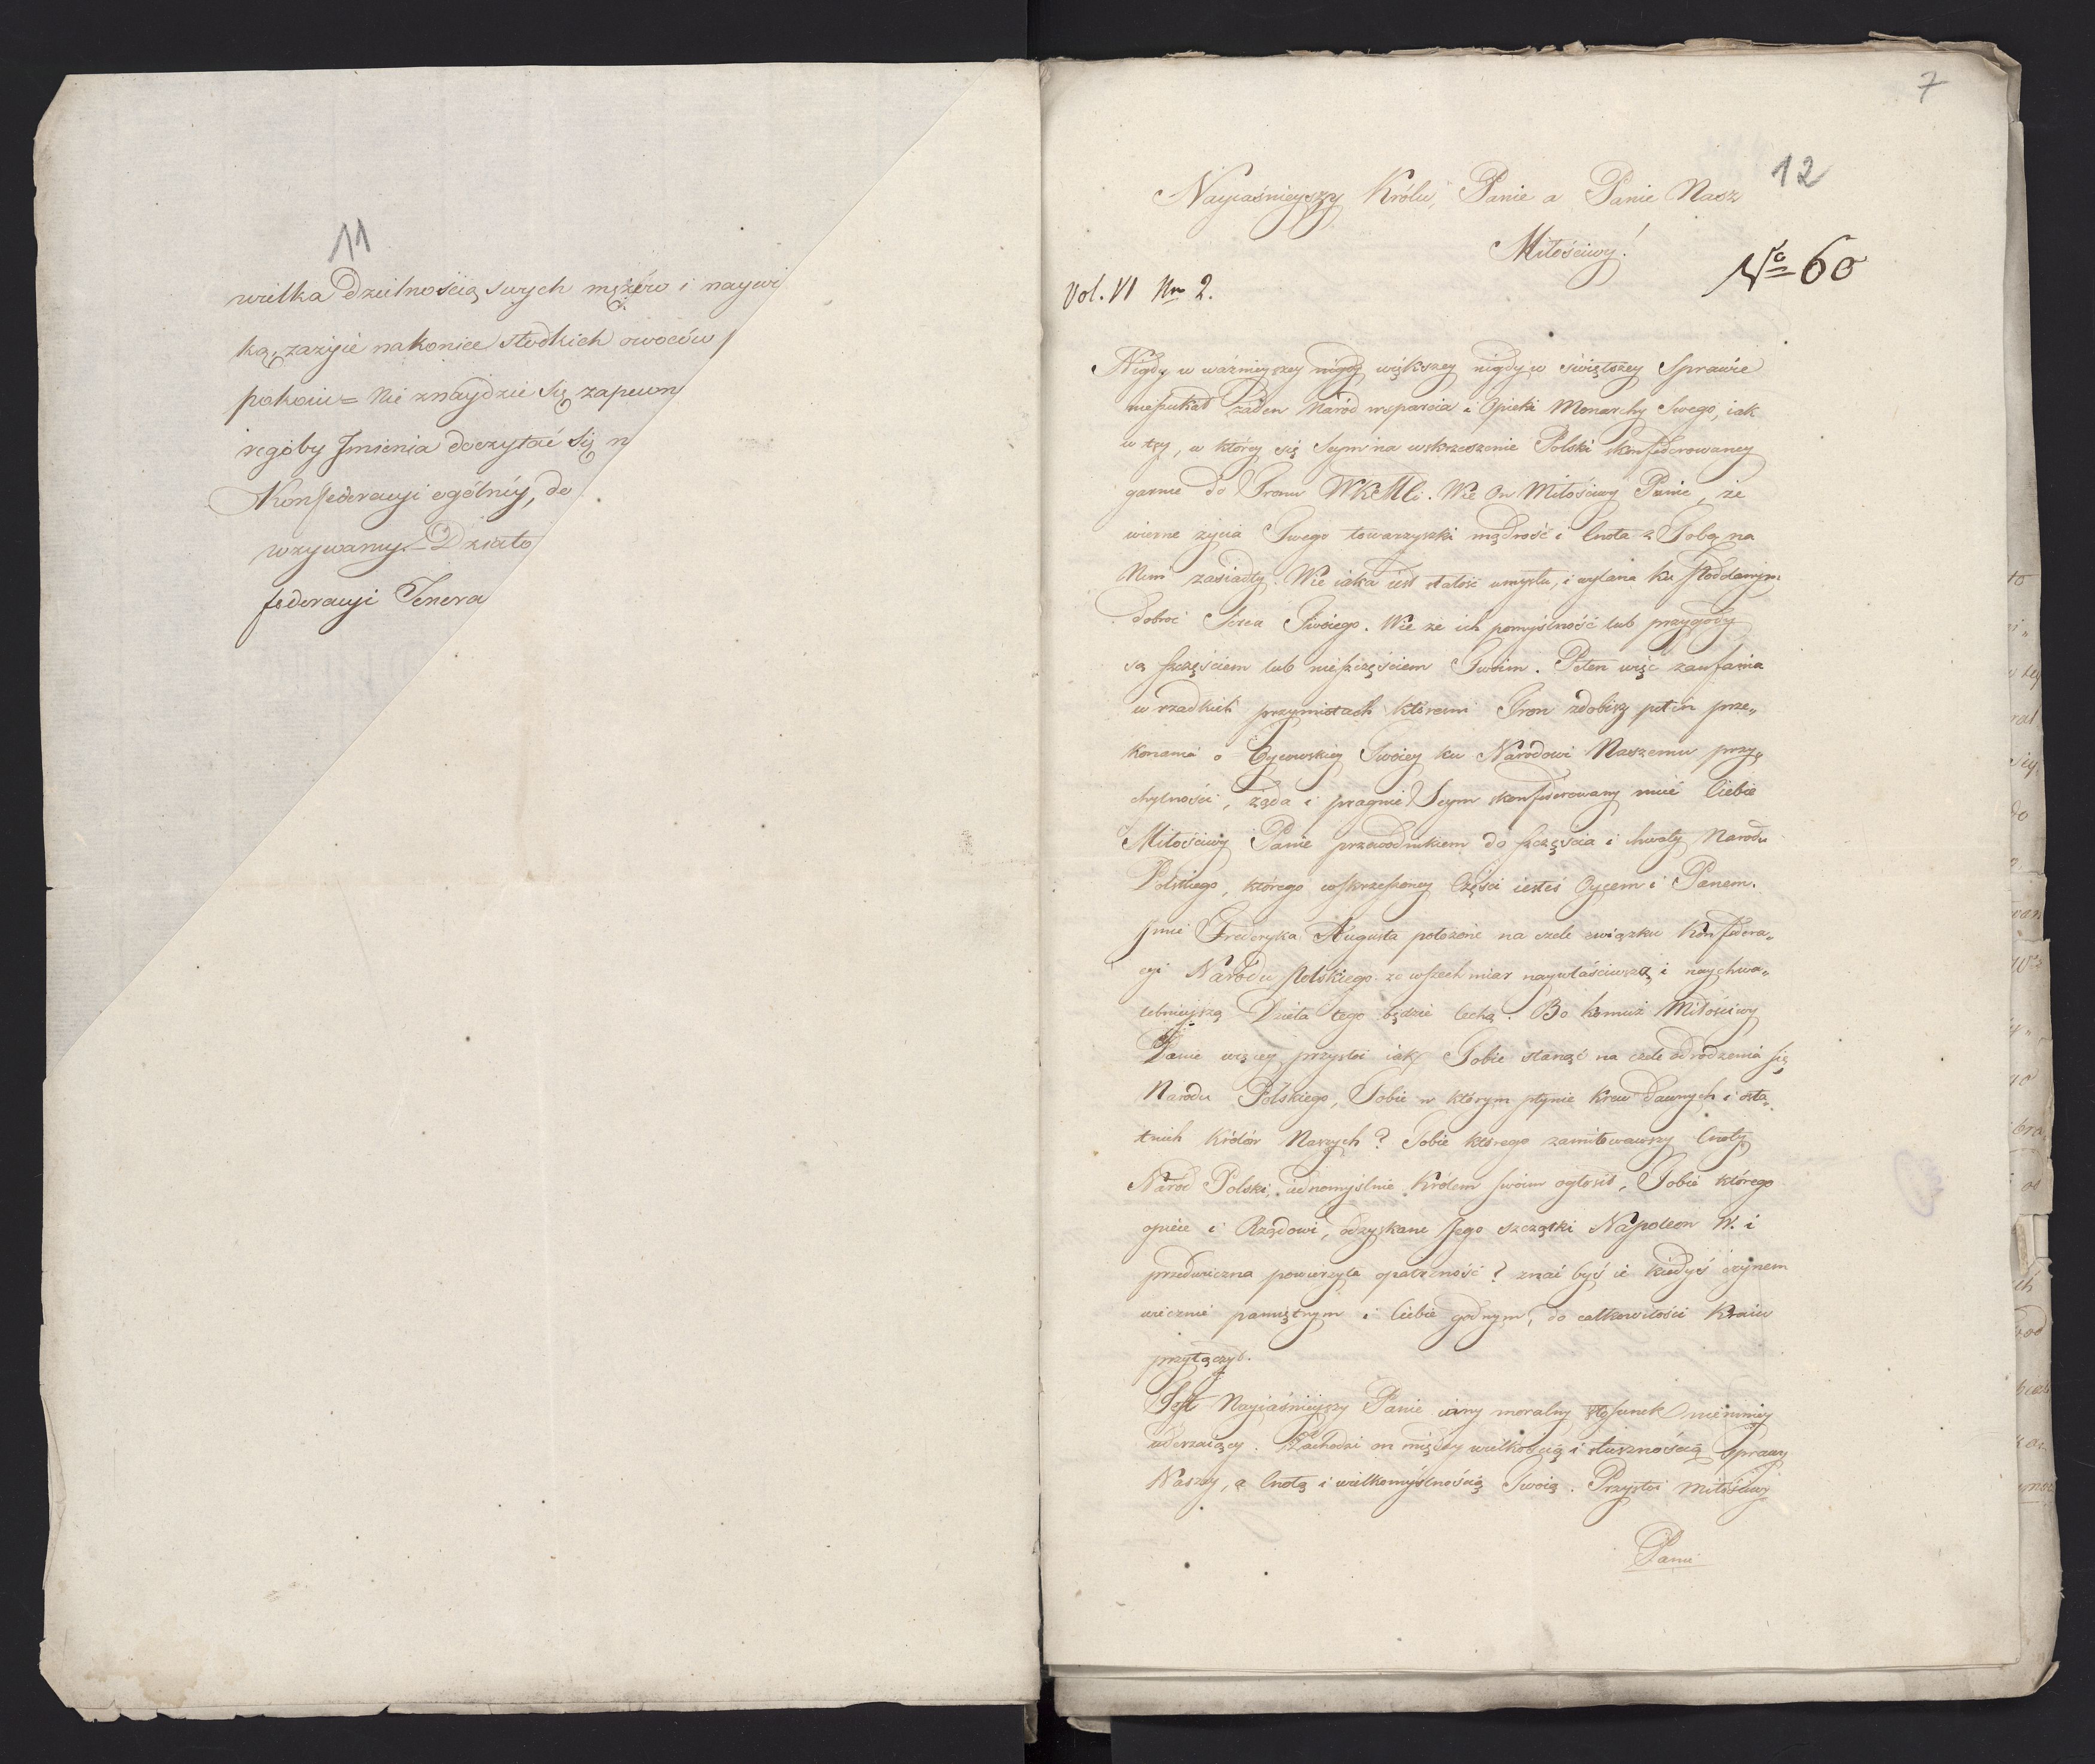 11
wielka Dzielnością swych mężów i naywi
ką, zażyie nakoniec słodkich owoców
pokoiu = Nie znaydzie Się zapewn
regoby Jmienia doczytać Się n
Konfederacyi ogólnéy, do
wzywamy. Działo
federacyi Genera
7
12
Nayiaśnieyszy Królu, Panie a Panie Nasz
Miłościwy!
No 60
Vol. VI Nro 2.
Nigdy w ważnieyszey nigdy większey nigdy w świętszey Sprawie
nieszukał żaden Naród wsparcia i Opieki Monarchy Swego, iak
w tey, w którey się Seym na wskrzeszenie Polski skonfederowaney
garnie do Tronu WKMci. Wie On Miłościwy Panie, że
wierne życia Twego towarzyszki mądrość i Cnota z Tobą na
Nim zasiadły. Wie iaka iest stałość umysłu, i wylana ku Poddanym
dobroć Serca Twoiego. Wie że ich pomyślność lub przygody
są szczęściem lub nieszczęściem Twoim. Pełen więc zaufania
w rzadkich przymiotach któremi Tron zdobisz pełen prze„
konania o Oycowskiey Twoiey ku Narodowi Naszemu przy„
chylności, żąda i pragnie Seym skonfederowany mieć Ciebie
Miłościwy Panie przewodnikiem do szczęścia i chwały Narodu
Polskiego, którego wskrzeszoney Części iesteś Oycem i Panem.
Jmie Fryderyka Augusta położone na czele związku Konfedera„
cyi Narodu Polskiego ze wszech miar naywłaściwszą i naychwa„
lebnieyszą Dzieła tego będzie Cechą. Bo komuż Miłościwy
Panie więcey przystoi iak Tobie stanąć na czele odrodzenia się
Narodu Polskiego, Tobie w którym płynie krew dawnych i osta„
tnich Królów Naszych? Tobie którego zamiłowawszy Cnoty
Naród Polski, iednomyślnie Królem swoim ogłosił, Tobie którego
opiece i Rządowi, odzyskane Jego szczątki Napoleon W. i
przedwieczna powierzyła opatrzność? znać byś ie kiedyś czynem
wiecznie pamiętnym i Ciebie godnym, do całkowitości Kraiu
przyłączył.
Jest Nayiaśnieyszy Panie inny moralny stosunek niemniey
uderzaiący. Zachodzi on między wielkością i słusznością Sprawy
Naszey, a Cnotą i wielkomyślnością Twoią. Przystoi Miłościwy
Panie